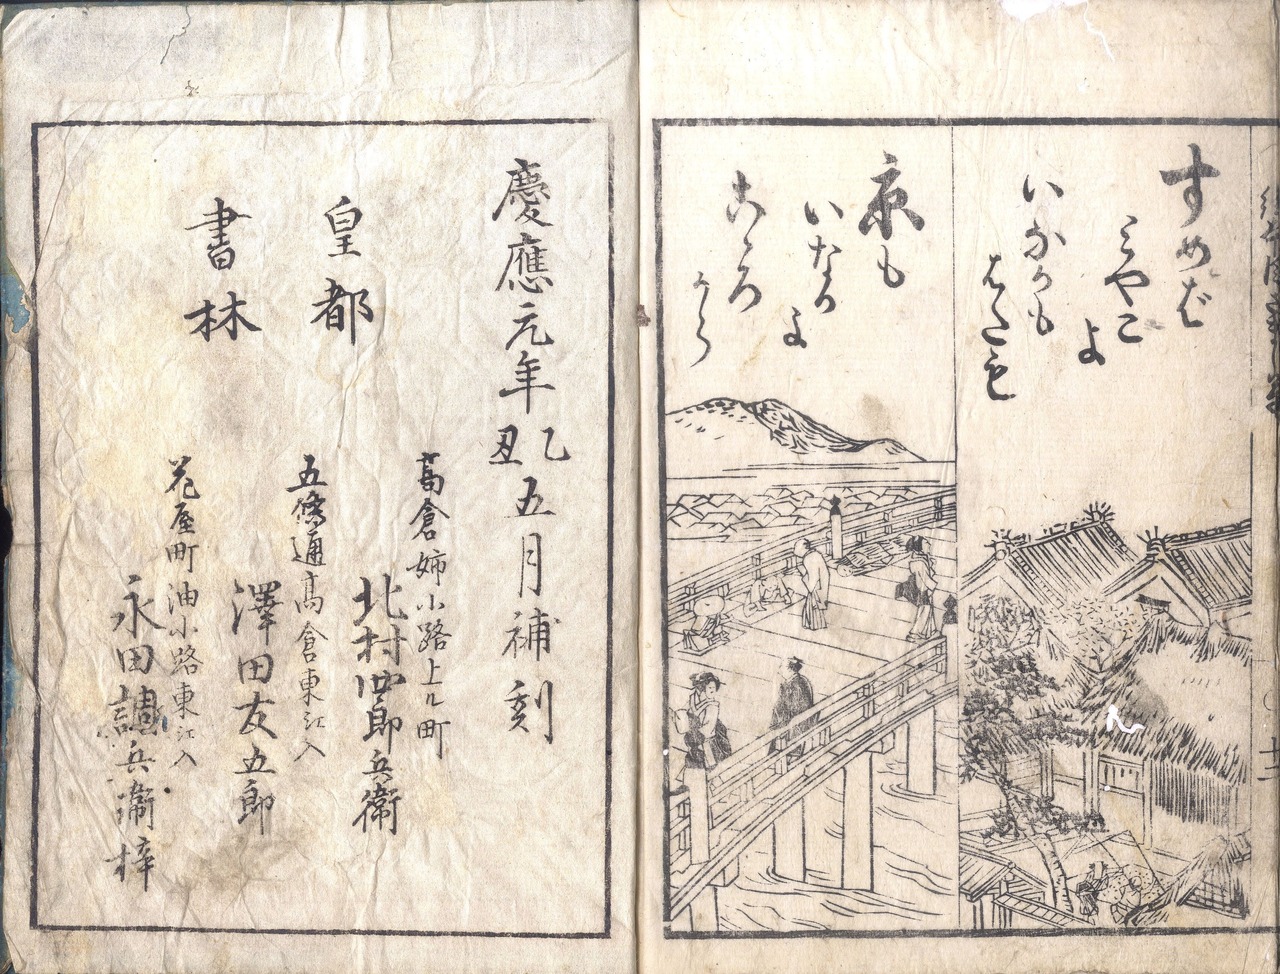 すめば
みやこ
よ
いかかも
京も
いなか
よ
こゝろ
から
慶應元年乙丑五月補刻
皇都
書林
高倉姉小路上ル町
北村四郎兵衛
五條通高倉東江入
澤田友五郎
花屋町油小路東江入
永田調兵衛梓